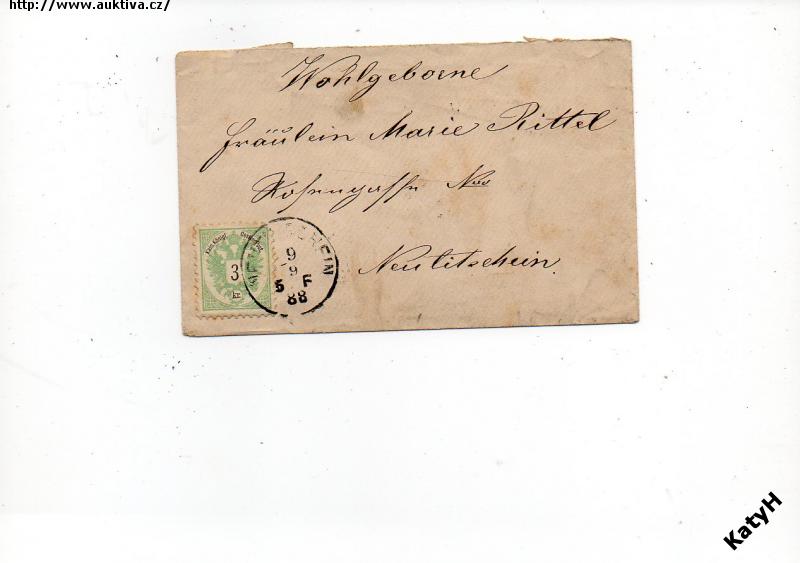 http://www.auktiva.cz/
Wohlgeborne
Fräulein Marie Rittel
Rosengasse Nro
Neutitschein
3
kr.
9
9
5 F
88
KatyH